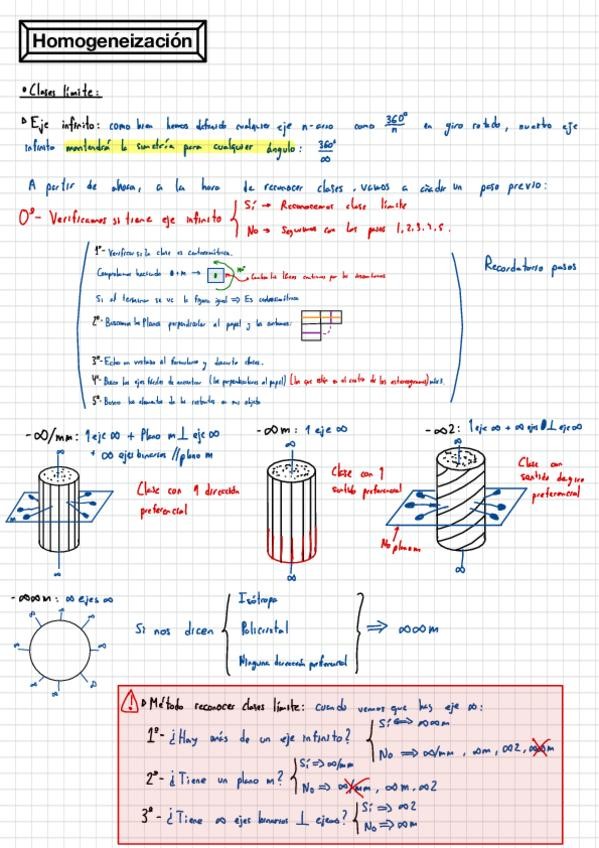 Homogeneización
• Clases límite:
▷ Eje infinito: como bien hemos definido cualquier eje n-ario como 360°/n en giro rotado, nuestro eje
infinito mantendrá la simetría para cualquier ángulo: 360°/∞
A partir de ahora, a la hora de reconocer clases, vamos a añadir un paso previo:
0º- Verificamos si tiene eje infinito { Sí → Reconocemos clase límite
No → Seguimos con los pasos 1, 2, 3, 4, 5.
1º- Verificar si la clase es centrosimétrica.
Comprobamos haciendo θ+m → Cambia las líneas continuas por las discontinuas
Si al terminar se ve la figura igual ⇒ Es centrosimétrica
Recordatorio pasos
2º- Buscamos los planos perpendicular al papel y los
3º- Echo un vistazo al formulario y descarto clases.
4º- Busco los ejes fáciles de encontrar (los perpendiculares al papel) (los que están en el centro de los estereogramas)
5º- Busco los elementos de la restantes en mi objeto
-∞/mm: 1 eje ∞ + Plano m ⊥ eje ∞
+ ∞ ejes binarios // plano m
-∞m: 1 eje ∞
-∞2: 1 eje ∞ + ∞ ejes ⊥ eje ∞
∞
∞
∞
Clase con 1 dirección
preferencial
Clase con 1
sentido preferencial
Clase con
sentido de giro
preferencial
No plano m
∞
∞
∞
-∞∞m: ∞ ejes ∞
Si nos dicen { Isótropo
Policristal
Ninguna dirección preferencial } ⇒ ∞∞m
▷ Método reconocer clases límite: cuando vemos que hay eje ∞:
1º- ¿Hay más de un eje infinito? { Sí ⇔ ∞∞m
No ⇒ ∞/mm, ∞m, ∞2, ∞∞m
2º- ¿Tiene un plano m? { Sí ⇒ ∞/mm
No ⇒ ∞/mm, ∞m, ∞2
3º- ¿Tiene ∞ ejes binarios ⊥ ejem∞? { Sí ⇒ ∞2
No ⇒ ∞m